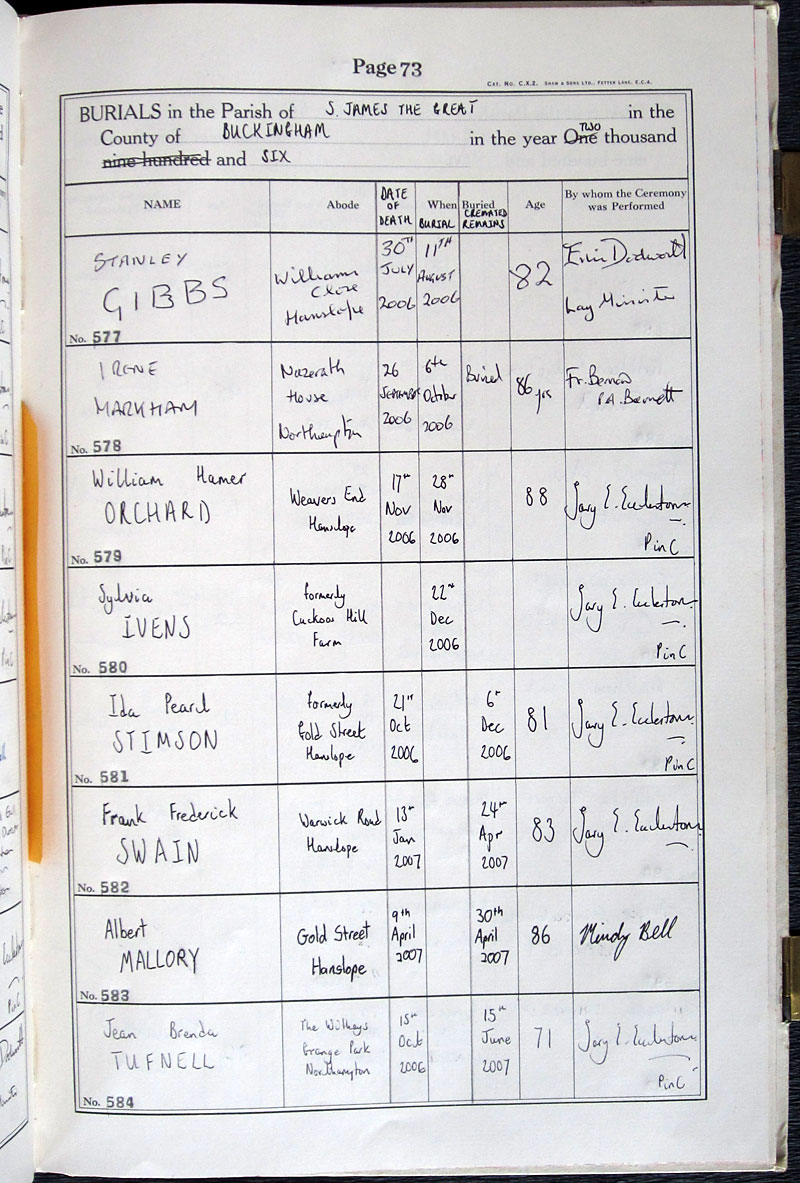 Page 73
CAT. NO. C.X.2. SHAW & SONS LTD., FETTER LANE, E.C.4.
BURIALS in the Parish of S. JAMES THE GREAT in the
County of BUCKINGHAM in the year One TWO thousand
nine hundred and SIX
NAME Abode DATE OF DEATH When BURIAL Buried CREMATED REMAINS Age By whom the Ceremony was Performed
STANLEY
GIBBS
Williams
Close
Hanslope
30TH
JULY
2006
11TH
AUGUST
2006
82
Dodworth
Lay Minister
No. 577
IRENE
MARKHAM
Nazerath
House
Northampton
26
SEPTEMBER
2006
6th
October
2006
Buried
86 yrs
Fr.
P.A. Bennett
No. 578
William Hamer
ORCHARD
Weavers End
Hanslope
17th
Nov
2006
28th
Nov
2006
88
Gary E. Ecclestone
P in C
No. 579
Sylvia
IVENS
formerly
Cuckoos Hill
Farm
22nd
Dec
2006
Gary E. Ecclestone
P in C
No. 580
Ida Pearl
STIMSON
formerly
Gold Street
Hanslope
21st
Oct
2006
6th
Dec
2006
81
Gary E. Ecclestone
P in C
No. 581
Frank Frederick
SWAIN
Warwick Road
Hanslope
13th
Jan
2007
24th
Apr
2007
83
Gary E. Ecclestone
No. 582
Albert
MALLORY
Gold Street
Hanslope
9th
April
2007
30th
April
2007
86
Mindy Bell
No. 583
Jean Brenda
TUFNELL
The
Grange Park
Northampton
15th
Oct
2006
15th
June
2007
71
Gary E. Ecclestone
P in C
No. 584